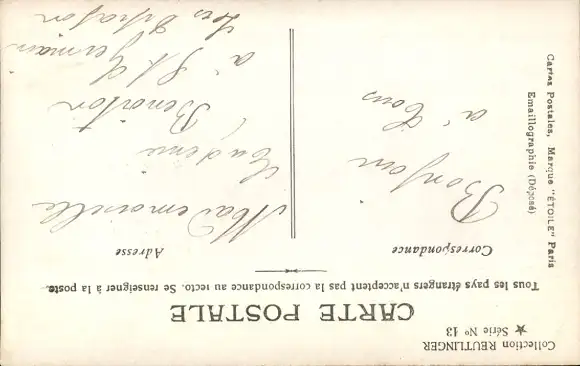 Collection REUTLINGER
★ Série N° 13
CARTE POSTALE
Tous les pays étrangers n'acceptent pas la correspondance au recto. Se renseigner à la poste.
Correspondance
Adresse
Bonjour
à tous
Mademoiselle
Eugénie
Benoiton
à St Germain
Cartes Postales, Marque "ÉTOILE" Paris
Emaillographie (Déposé)